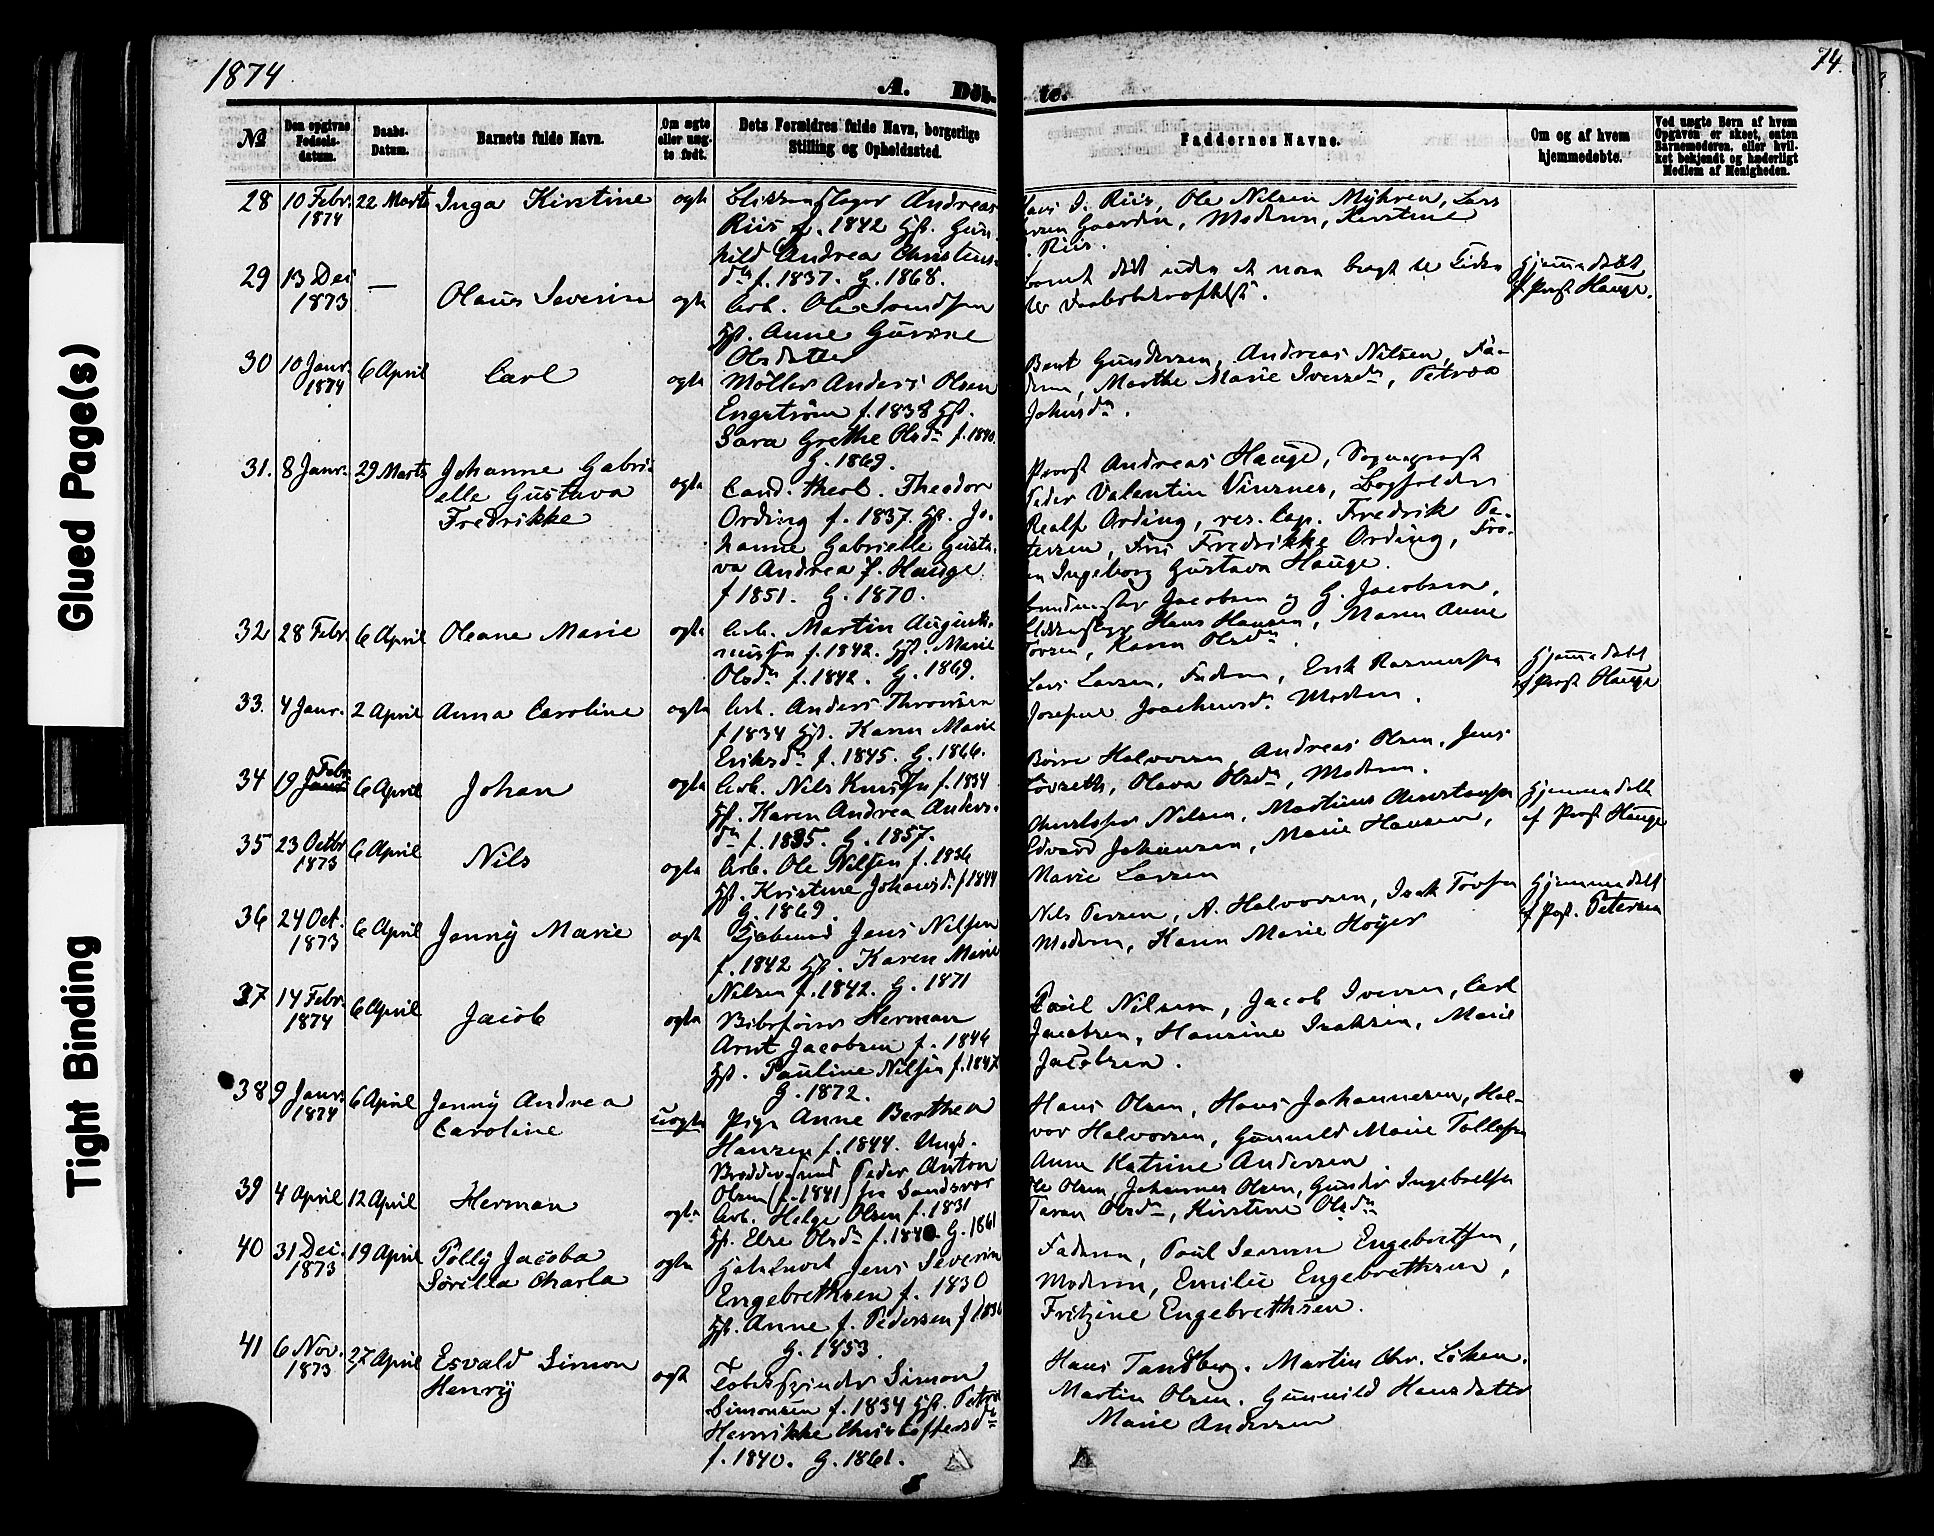 Glued Page(s)
Tight Binding
1874
74.
A. Döb- te.
№
Den opgivne Fødsels- datum.
Daabs- Datum.
Barnets fulde Navn.
Om ægte eller uæg- te født.
Dets Forældres fulde Navn, borgerlige Stilling og Opholdssted.
Faddernes Navne.
Om og af hvem hjemmedøbte.
Ved uægte Børn af hvem Opgaven er skeet, enten Barnemoderen, eller hvil- ket bekjendt og hæderligt Medlem af Menigheden.
28 10 Febr. 1874 22 Marts Inga Kirstine ægte
Andreas
Riis f. 1842 Hst. Gun-
hild Andrea Christens-
dn f. 1837. G. 1868.
Riis, Ole Nilsen Myhren, Lars
Gaarden, Moderen, Kirstine
Riis.
29 13 Dec 1873 — Olaus Severin ægte
Arb. Ole Svendsen
Hst. Anne Gurine
Olsdatter
Hjemmedøbt
af Prost Hauge.
30 10 Janr. 1874 6 April Carl ægte
Møller Anders Olsen
Engstrøm f. 1838 Hst.
Sara Grethe Olsdn f. 1840.
G. 1869.
Bent Gundersen, Andreas Nilsen, Fa-
deren, Marthe Marie Iversdn, Petrea
Johnsdn.
31. 8 Janr. 29 Marts Johanne Gabri-
elle Gustava
Fredrikke
ægte
Cand. theol. Theodor
Ording f. 1837. Hst. Jo-
hanne Gabrielle Gusta-
va Andrea f. Hauge
f 1851. G. 1870.
Provst Andreas Hauge, Sogneprest
Peder Valentin Vinsnes, Bogholder
Realf Ording, res. Cap. Fredrik Pe-
tersen, Frk Fredrikke Ording, Frø-
en Ingeborg Gustava Hauge.
32 28 Febr. 6 April Oleane Marie ægte
Arb. Martin August.
f. 1842. Hst. Marie
Olsdn f. 1842. G. 1869.
Jacobsen og G. Jacobsen,
Hans Hansen, Maren Anne
Karen Olsdn
33. 4 Janr. 2 April Anna Caroline ægte
Arb. Anders Thronsen
f 1834 Hst. Karen Marie
Eriksdn f. 1845. G. 1866.
Lars Larsen, Faderen, Erik Rasmussen
Josefine Joachimsdn Moderen.
Hjemmedøbt
af Prost Hauge
34 19 Febr. 6 April Johan ægte
Arb. Nils Knudsen f. 1834
Hst. Karen Andrea Anders-
dn f. 1835. G. 1857.
Børre Halvorsen, Andreas Olsen, Jens
Olava Olsdn, Moderen.
35 23 Octbr 1873 6 April Nils ægte
Arb. Ole Nilsen f. 1836
Hst. Kristine Johansdn f 1844
G. 1869.
Christofer Nilsen, Martinus Christensen
Edvard Johansen, Marie Hansen,
Marie Larsen
Hjemmedøbt
af Prost Hauge
36 24 Oct. 1873 6 April Jenny Marie ægte
Jens Nilsen
f. 1842 Hst. Karen Marie
Nilsen f. 1842. G. 1871
Nils Persen, A. Halvorsen, Isak
Moderen, Karen Marie Høyer
Hjemmedøbt
af Prst. Petersen
37 14 Febr. 1874 6 April Jacob ægte
Herman
Arnt Jacobsen f. 1846
Hst. Pauline Nilsen f. 1847
G. 1872.
Paul Nilsen, Jacob Iversen, Carl
Jacobsen, Hansine Isaksen, Marie
Jacobsen.
38 9 Janr. 1874 6 April Jenny Andrea
Caroline
uægte
Pige Anne Berthea
Hansen f. 1844. Ungk.
Peder Anton
Olsen (f. 1841) fra Sandsvær
Hans Olsen, Hans Johannesen, Hal-
vor Halvorsen, Gunnild Marie Tollefsen
Anne Katrine Andersen
39 4 April 12 April Herman ægte
Arb. Helge Olsen f. 1831
Hst. Else Olsdn f. 1840 G. 1861
Ole Olsen, Johannes Olsen, Gunder Ingebretsen
Taran Olsdn, Kirstine Olsdn
40 31 Dec. 1873 19 April Polly Jacoba
Sorella Charla
ægte
Jens Severin
Engebrethsen f. 1830
Hst. Anne f. Pedersen f 1836
G. 1853.
Faderen, Poul Iversen Engebretsen,
Moderen, Emilie Engebrethsen,
Fritzine Engebrethsen.
41 6 Nov. 1873 27 April Esvald Simon
Henry
ægt
Simon
Simonsen f. 1834 Hst. Petra
Henrikke Christoffersdn
f. 1840. G. 1861.
Hans Tandberg. Martin Chr. Løken.
Martin Olsen. Gunnild Hansdatter
Marie Andersen